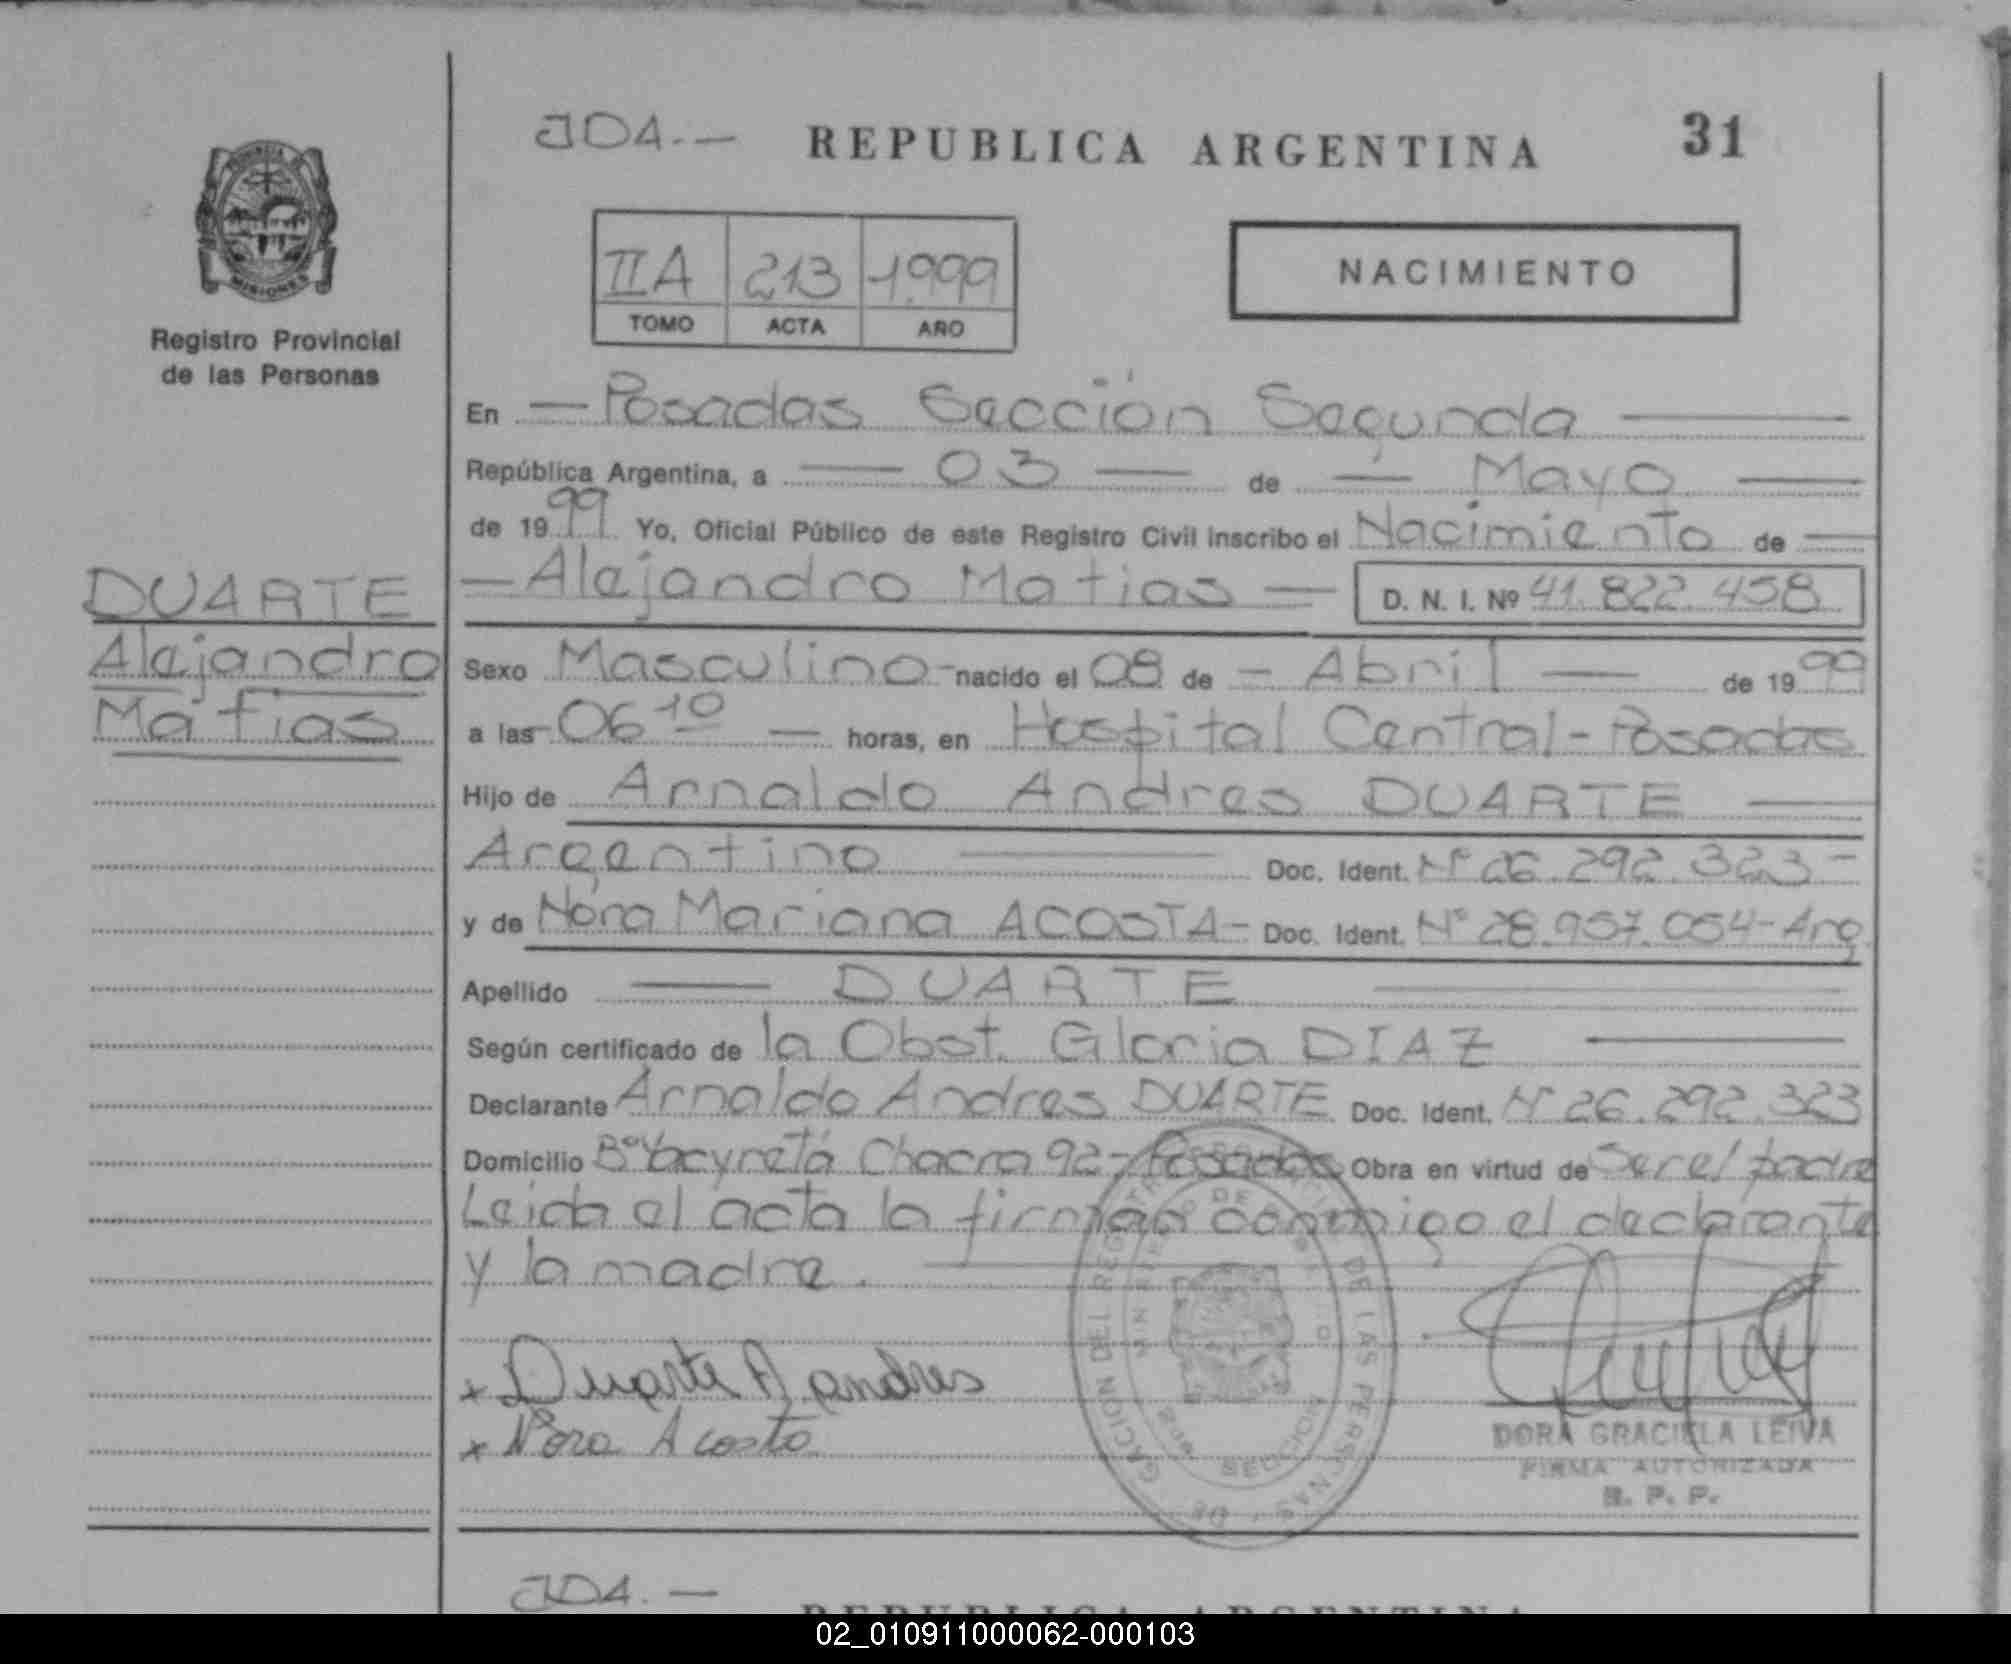 JDA.-
REPUBLICA ARGENTINA
31
PROVINCIA DE
MISIONES
Registro Provincial
de las Personas
IIA 213 1.999
TOMO ACTA AÑO
NACIMIENTO
En — Posadas Sección Segunda —
República Argentina, a — 03 — de — Mayo —
de 1999 Yo, Oficial Público de este Registro Civil inscribo el Nacimiento de —
— Alejandro Matias — D. N. I. Nº 41.822.458
DUARTE
Alejandro
Matias
Sexo Masculino - nacido el 08 de - Abril — de 1999
a las 06 10 — horas, en Hospital Central - Posadas
Hijo de Arnaldo Andres DUARTE —
Argentino — Doc. Ident. Nº 26.292.323 -
y de Nora Mariana ACOSTA - Doc. Ident. Nº 28.957.054 - Arg.
Apellido — DUARTE —
Según certificado de la Obst. Gloria DIAZ —
Declarante Arnaldo Andres DUARTE Doc. Ident. Nº 26.292.323
Domicilio Bº Yacyretá Chacra 92 - Posadas Obra en virtud de Ser el padre
Leida el acta la firman conmigo el declarante
y la madre. —
x Duarte A andres
x Nora Acosta
DE LAS PERSONAS
DORA GRACIELA LEIVA
FIRMA AUTORIZADA
R. P. P.
JDA.-
REPUBLICA ARGENTINA
02_010911000062-000103